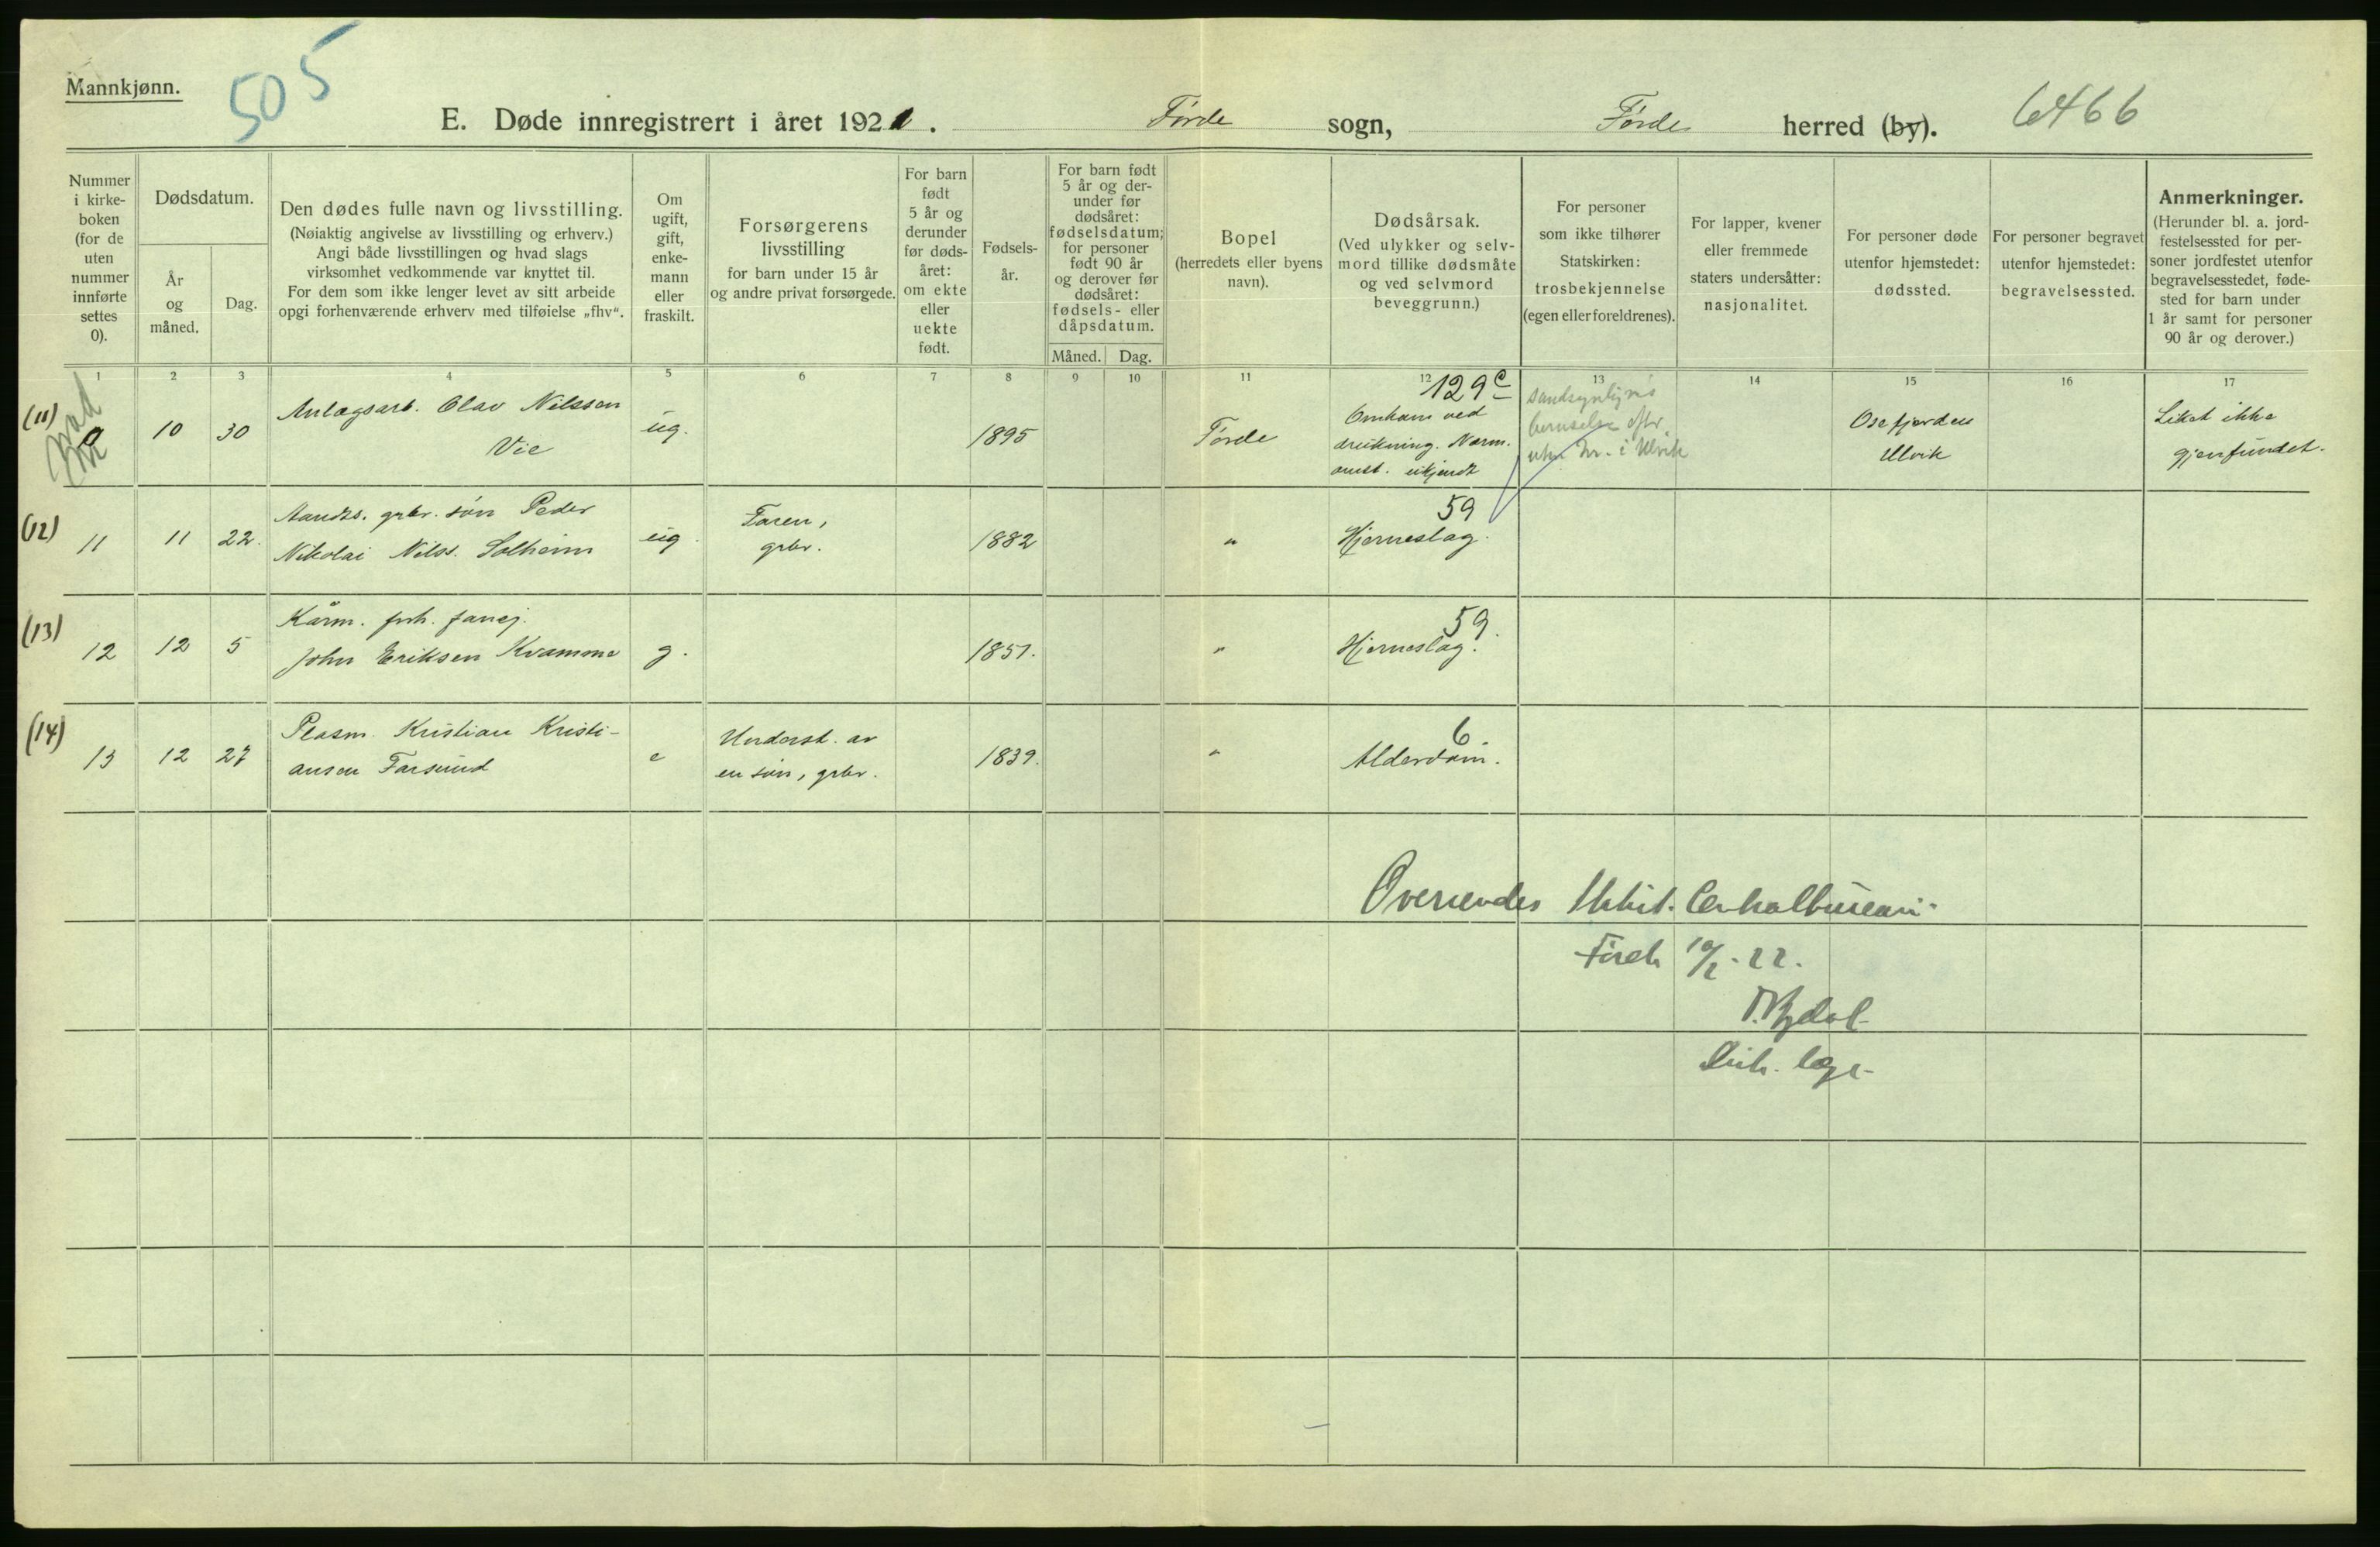 Mannkjønn.
505
E. Døde innregistrert i året 1921. Førde sogn, Førde herred (by). 6466
Nummer i kirke-boken (for de uten nummer innførte settes 0).
Dødsdatum.
År og måned.
Dag.
Den dødes fulle navn og livsstilling.
(Nøiaktig angivelse av livsstilling og erhverv.)
Angi både livsstillingen og hvad slags
virksomhet vedkommende var knyttet til.
For dem som ikke lenger levet av sitt arbeide
opgi forhenværende erhverv med tilføielse „fhv“.
Om ugift, gift, enke-mann eller fraskilt.
Forsørgerens
livsstilling
for barn under 15 år
og andre privat forsørgede.
For barn født 5 år og derunder før døds-året: om ekte eller uekte født.
Fødsels-år.
For barn født 5 år og der-under før dødsåret: fødselsdatum; for personer født 90 år og derover før dødsåret: fødsels- eller dåpsdatum.
Måned. Dag.
Bopel
(herredets eller byens
navn).
Dødsårsak.
(Ved ulykker og selv-
mord tillike dødsmåte
og ved selvmord
beveggrunn.)
For personer
som ikke tilhører
Statskirken:
trosbekjennelse
(egen eller foreldrenes).
For lapper, kvener
eller fremmede
staters undersåtter:
nasjonalitet.
For personer døde
utenfor hjemstedet:
dødssted.
For personer begravet
utenfor hjemstedet:
begravelsessted.
Anmerkninger.
(Herunder bl. a. jord-
festelsessted for per-
soner jordfestet utenfor
begravelsesstedet, føde-
sted for barn under
1 år samt for personer
90 år og derover.)
1 2 3 4 5 6 7 8 9 10 11 12 13 14 15 16 17
(11) 0 10 30 Anlægsarb. Olav Nilssen
Vie
ug. 1895 Førde
129c
Omkom ved
drukning. Nærm.
omst. ukjendt
sandsynligvis
Osefjorden
Ulvik
Liket ikke
gjenfundet.
(12) 11 11 22. Aandss. grbr. søn Peder
Nikolai Nilss. Solheim
ug. Faren,
grbr.
1882 " 59
Hjerneslag.
(13) 12 12 5 Kårm. forh. fanej.
John Eriksen Kvamme
g. 1851. " 59.
Hjerneslag.
(14) 13 12 27 Plasm. Kristian Kristi-
ansen Farsund
e Underst. av
en søn, grbr.
1839. " 6
Alderdom.
Oversendes Statist. Centralbureau
Førde 10/2-22.
Distr. læge